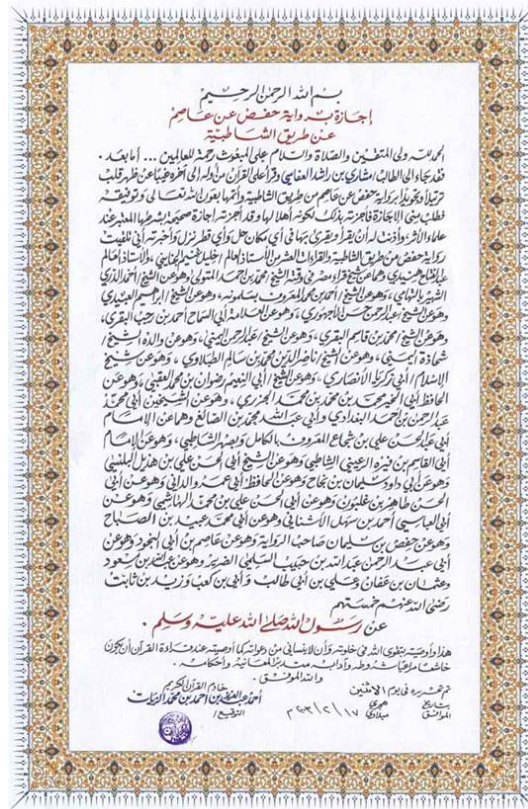 بسم الله الرحمن الرحيم
إجازة برواية حفص عن عاصم
عن طريق الشاطبية
الحمد لله ولي المتقين والصلاة والسلام على المبعوث رحمة للعالمين ... أما بعد .
فقد جاء إلي الطالب / مشاري بن راشد العفاسي وقرأ علي القرآن من أوله إلى آخره غيبا عن ظهر قلب
ترتيلا وتجويدا برواية حفص عن عاصم من طريق الشاطبية وأتمها بعون الله تعالى وتوفيقه
فطلب مني الإجازة فأجزته بذلك لكونه أهلا لها وقد أجزته إجازة صحيحة بشرطها المعتبر عند
علماء الأثر وأذنت له أن يقرأ ويقرئ بها في أي مكان حل وأي قطر نزل وأخبرته أني تلقيت
رواية حفص من طريق الشاطبية والقراءات العشر من الأستاذ العالم / خليل غنيم الجنايني ، والأستاذ العالم
عبد الفتاح هنيدي وهما عن شيخ قراء مصر في وقته الشيخ / محمد بن أحمد المتولي وهو عن الشيخ / أحمد الدري
الشهير بالتهامي ، وهو عن الشيخ / أحمد بن محمد المعروف بسلمونه ، وهو عن الشيخ / إبراهيم العبيدي
وهو عن الشيخ / عبد الرحمن بن حسن الأجهوري ، وهو عن العلامة / أبي السماح أحمد بن رجب البقري ،
وهو عن الشيخ / محمد بن قاسم البقري ، وهو عن الشيخ / عبد الرحمن اليمني ، وهو عن والده الشيخ /
شحاذة اليمني ، وهو عن الشيخ / ناصر الدين محمد بن سالم الطبلاوي ، وهو عن شيخ
الإسلام / أبي زكريا الأنصاري ، وهو عن الشيخ / أبي النعيم رضوان بن محمد العقبي ، وهو عن
الحافظ أبي الخير محمد بن محمد بن محمد الجزري ، وهو عن الشيخين أبي محمد
عبد الرحمن بن أحمد البغدادي وأبي عبد الله محمد بن الصائغ وهما عن الإمام
أبي عبد الحسن علي بن شجاع المعروف بالكامل وبصهر الشاطبي ، وهو عن الإمام
أبي القاسم بن فيره الرعيني الشاطبي وهو عن الشيخ أبي الحسن علي بن هذيل البلنسي
وهو عن أبي داود سليمان بن نجاح وهو عن الحافظ / أبي عمرو الداني وهو عن أبي
الحسن طاهر بن غلبون وهو عن أبي الحسن علي بن محمد الهاشمي وهو عن
أبي العباس أحمد بن سهل الأشناني وهو عن أبي محمد عبيد بن الصباح
وهو عن حفص بن سليمان صاحب الرواية وهو عن عاصم بن أبي النجود وهو عن
أبي عبد الرحمن عبد الله بن حبيب السلمي الضرير وهو عن عبد الله بن مسعود
وعثمان بن عفان وعلي بن أبي طالب وأبي بن كعب وزيد بن ثابت
رضي الله عنهم خمستهم
عن رسول الله صلى الله عليه وسلم .
هذا وأوصيته بتقوى الله في خلوته وأن لا ينساني من دعواته كما أوصيته عند قراءة القرآن أن يكون
خاشعا مراعيا شروطه وآدابه متدبرا لمعانيه وأحكامه .
والله الموفق .
تم تحريره في يوم الاثنين
بتاريخ هجري
الموافق ١٧/٢/٢٠٠٣م ميلادي
خادم القرآن الكريم
أحمد عبد العزيز بن أحمد بن محمد الزيات
التوقيع /